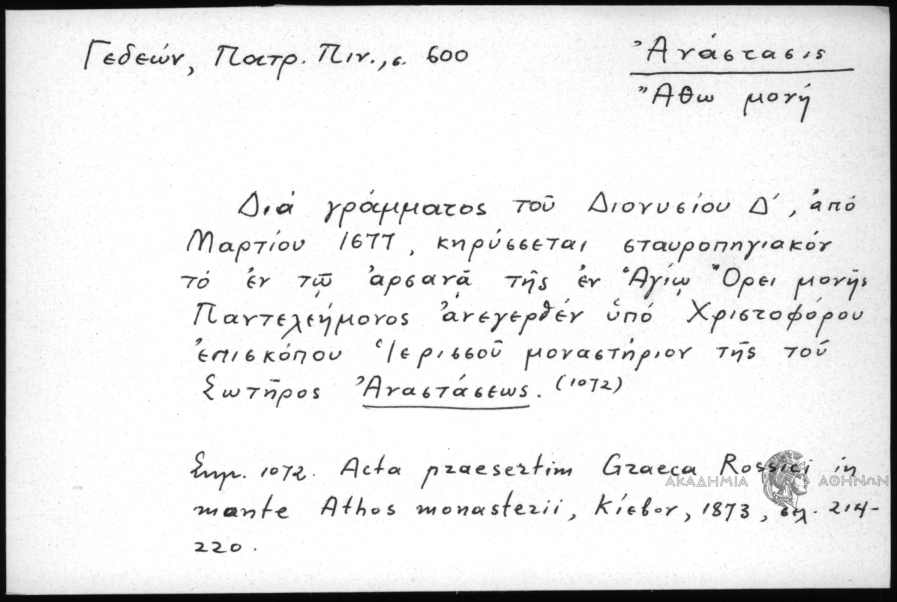 Γεδεών, Πατρ. Πιν., σ. 600
Ἀνάστασις
Ἄθω μονή
Διά γράμματος τοῦ Διονυσίου Δ΄, ἀπό
Μαρτίου 1677, κηρύσσεται σταυροπηγιακόν
τό ἐν τῷ ἀρσανᾷ τῆς ἐν Ἁγίῳ Ὄρει μονῆς
Παντελεήμονος ἀνεγερθέν ὑπό Χριστοφόρου
ἐπισκόπου Ἱερισσοῦ μοναστήριον τῆς τοῦ
Σωτῆρος Ἀναστάσεως. (1072)
Σημ. 1072. Acta praesertim Graeca Rossici in
monte Athos monasterii, Κίεβον, 1873, σελ. 214-
220.
ΑΚΑΔΗΜΙΑ ΑΘΗΝΩΝ